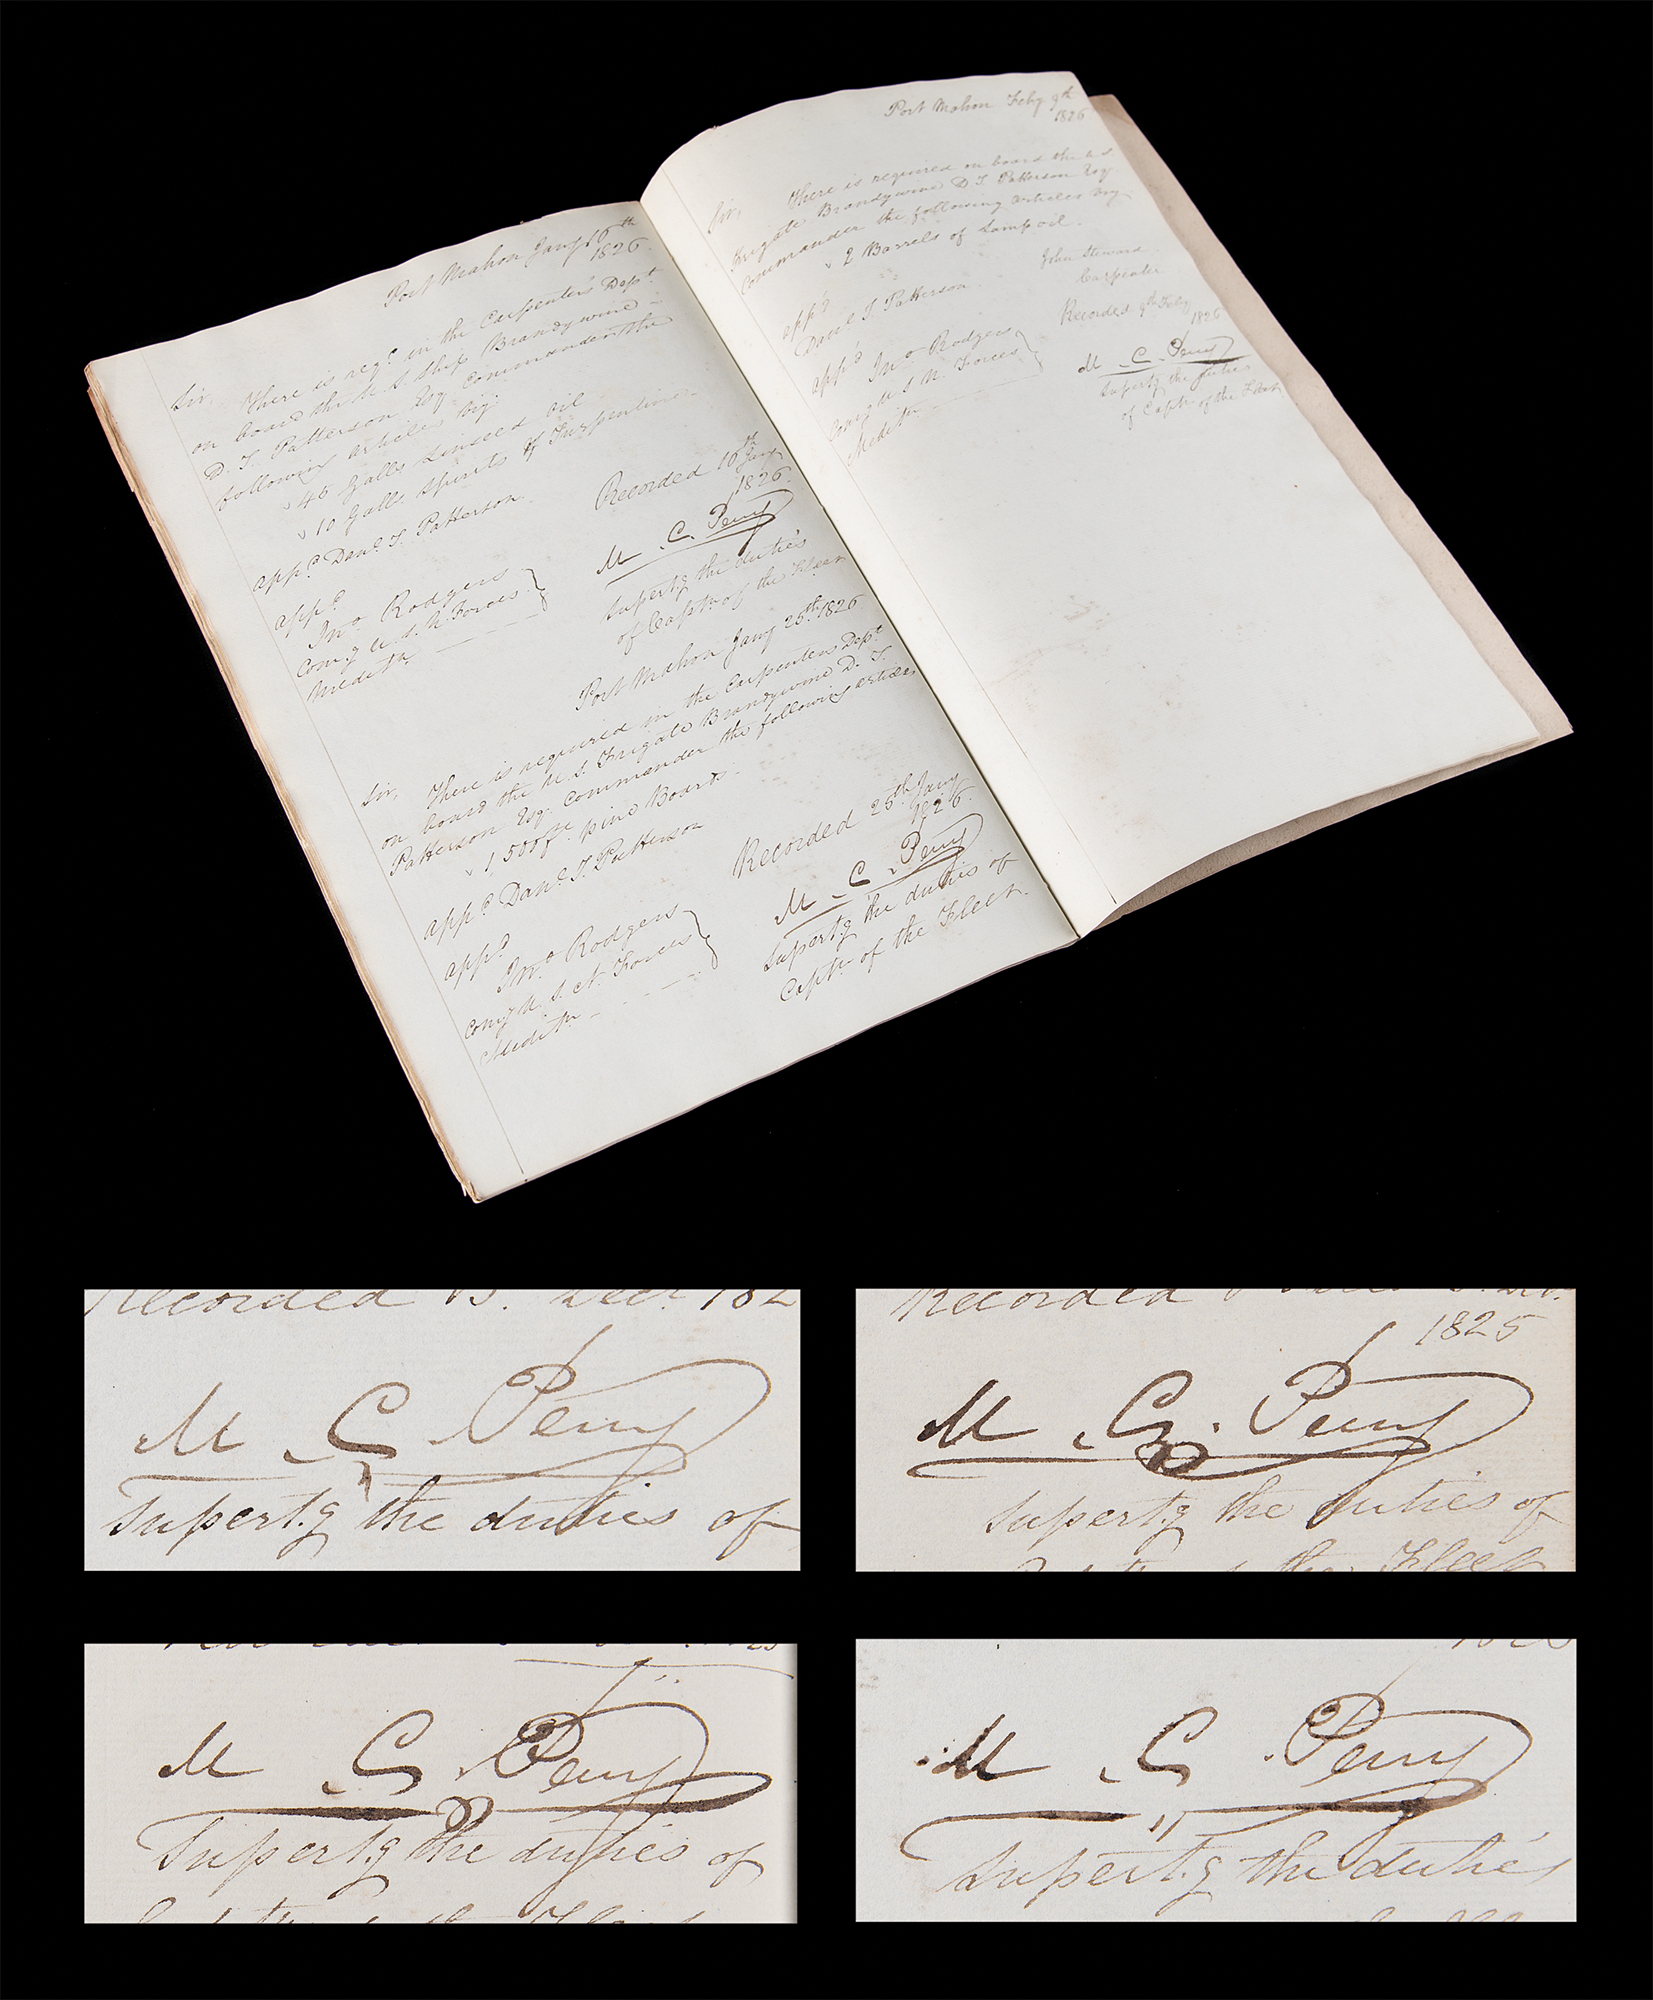 Port Mahon Jany 16th
1826.
Sir,
There is reqd. in the Carpenters Dept.
on board the U S Ship Brandywine
D. T. Patterson Esq Commander the
following articles viz.
45 Galls Linseed Oil
10 Galls Spirits of Turpentine
appd. Danl. T. Patterson.
Recorded 16th Jany
1826.
appd.
Jno Rodgers
Comg U. S. N. Forces
Medit.n
M. C. Perry
Supertg the duties
of Captn of the Fleet
Port Mahon Jany 25th 1826
Sir, There is required in the Carpenters Dept.
on board the U. S. Frigate Brandywine D. T.
Patterson Esq. Commander the following articles
1,500 ft. pine Boards.
appd. Danl. T. Patterson
Recorded 25th Jany
1826.
appd.
Jno Rodgers
Comg U. S. N. Forces
Medit.n
M. C. Perry
Supertg the duties of
Captn. of the Fleet.
Port Mahon Feby 9th
1826
Sir, There is required on board the U S.
Frigate Brandywine D T. Patterson Esq.
Commander the following articles viz
2 Barrels of Lamp oil.
John Steward
Carpenter
appd.
Danl. T. Patterson
Recorded 9th Feby
1826
appd Jno Rodgers
Comg U. S. N. Forces
Medit.n
M. C. Perry
Supertg the duties
of Captn of the Fleet
Recorded 13. Decr. 182
M C. Perry
Supert.g the duties of
Recorded
1825
M C. Perry
Supert.g the duties of
the Fleet
M C. Perry
Supert.g the duties of
M C. Perry
Supert.g the duties